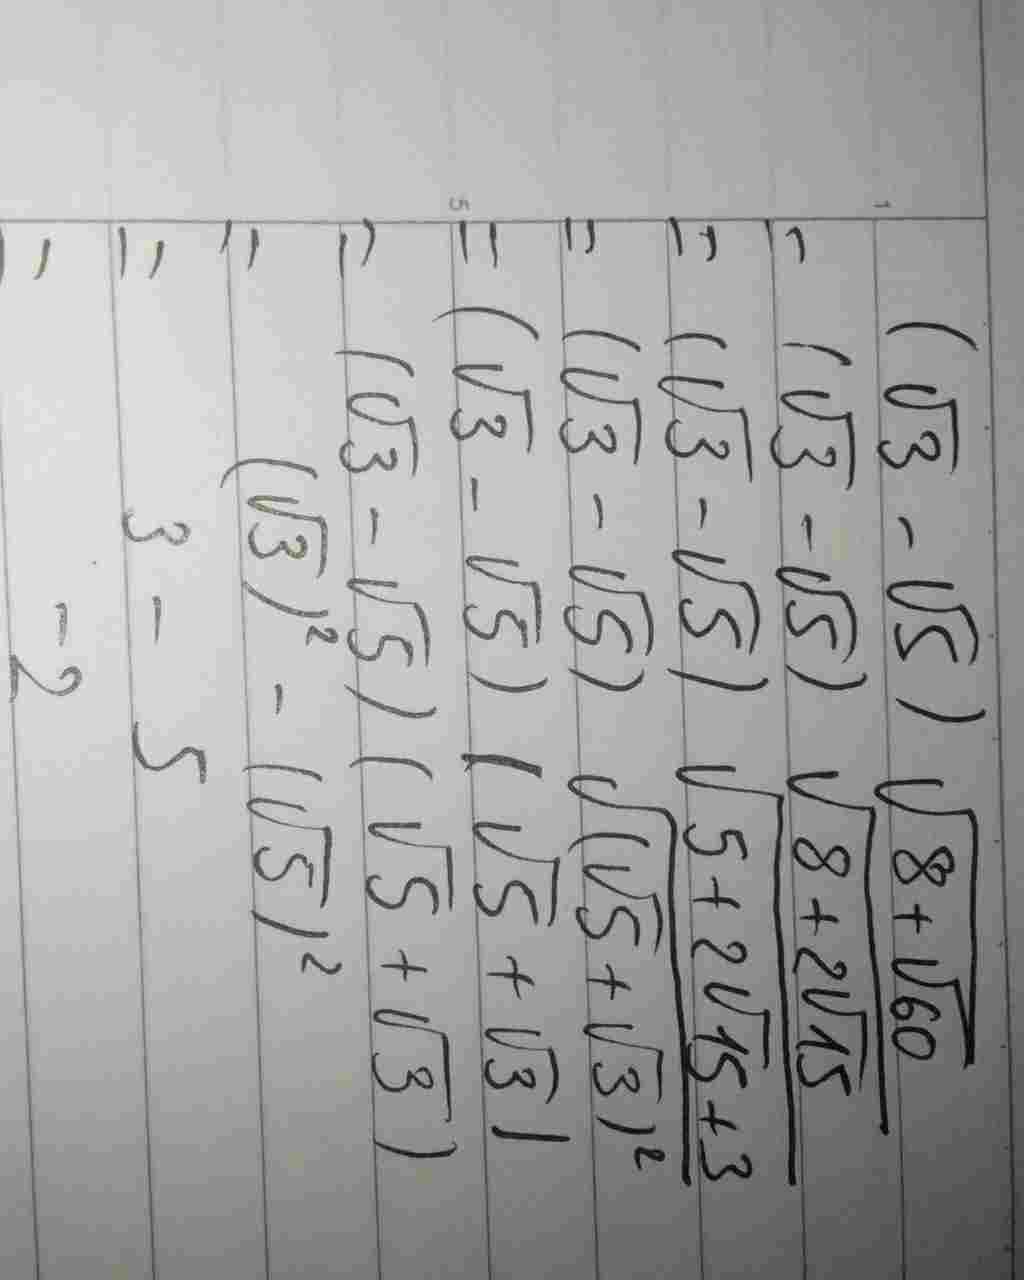 (√3 - √5) √(8 + √60)
= (√3 - √5) √(8 + 2√15)
= (√3 - √5) √(5 + 2√15 + 3)
= (√3 - √5) √((√5 + √3)²)
= (√3 - √5) |√5 + √3|
= (√3 - √5) (√5 + √3)
= (√3)² - (√5)²
= 3 - 5
= -2